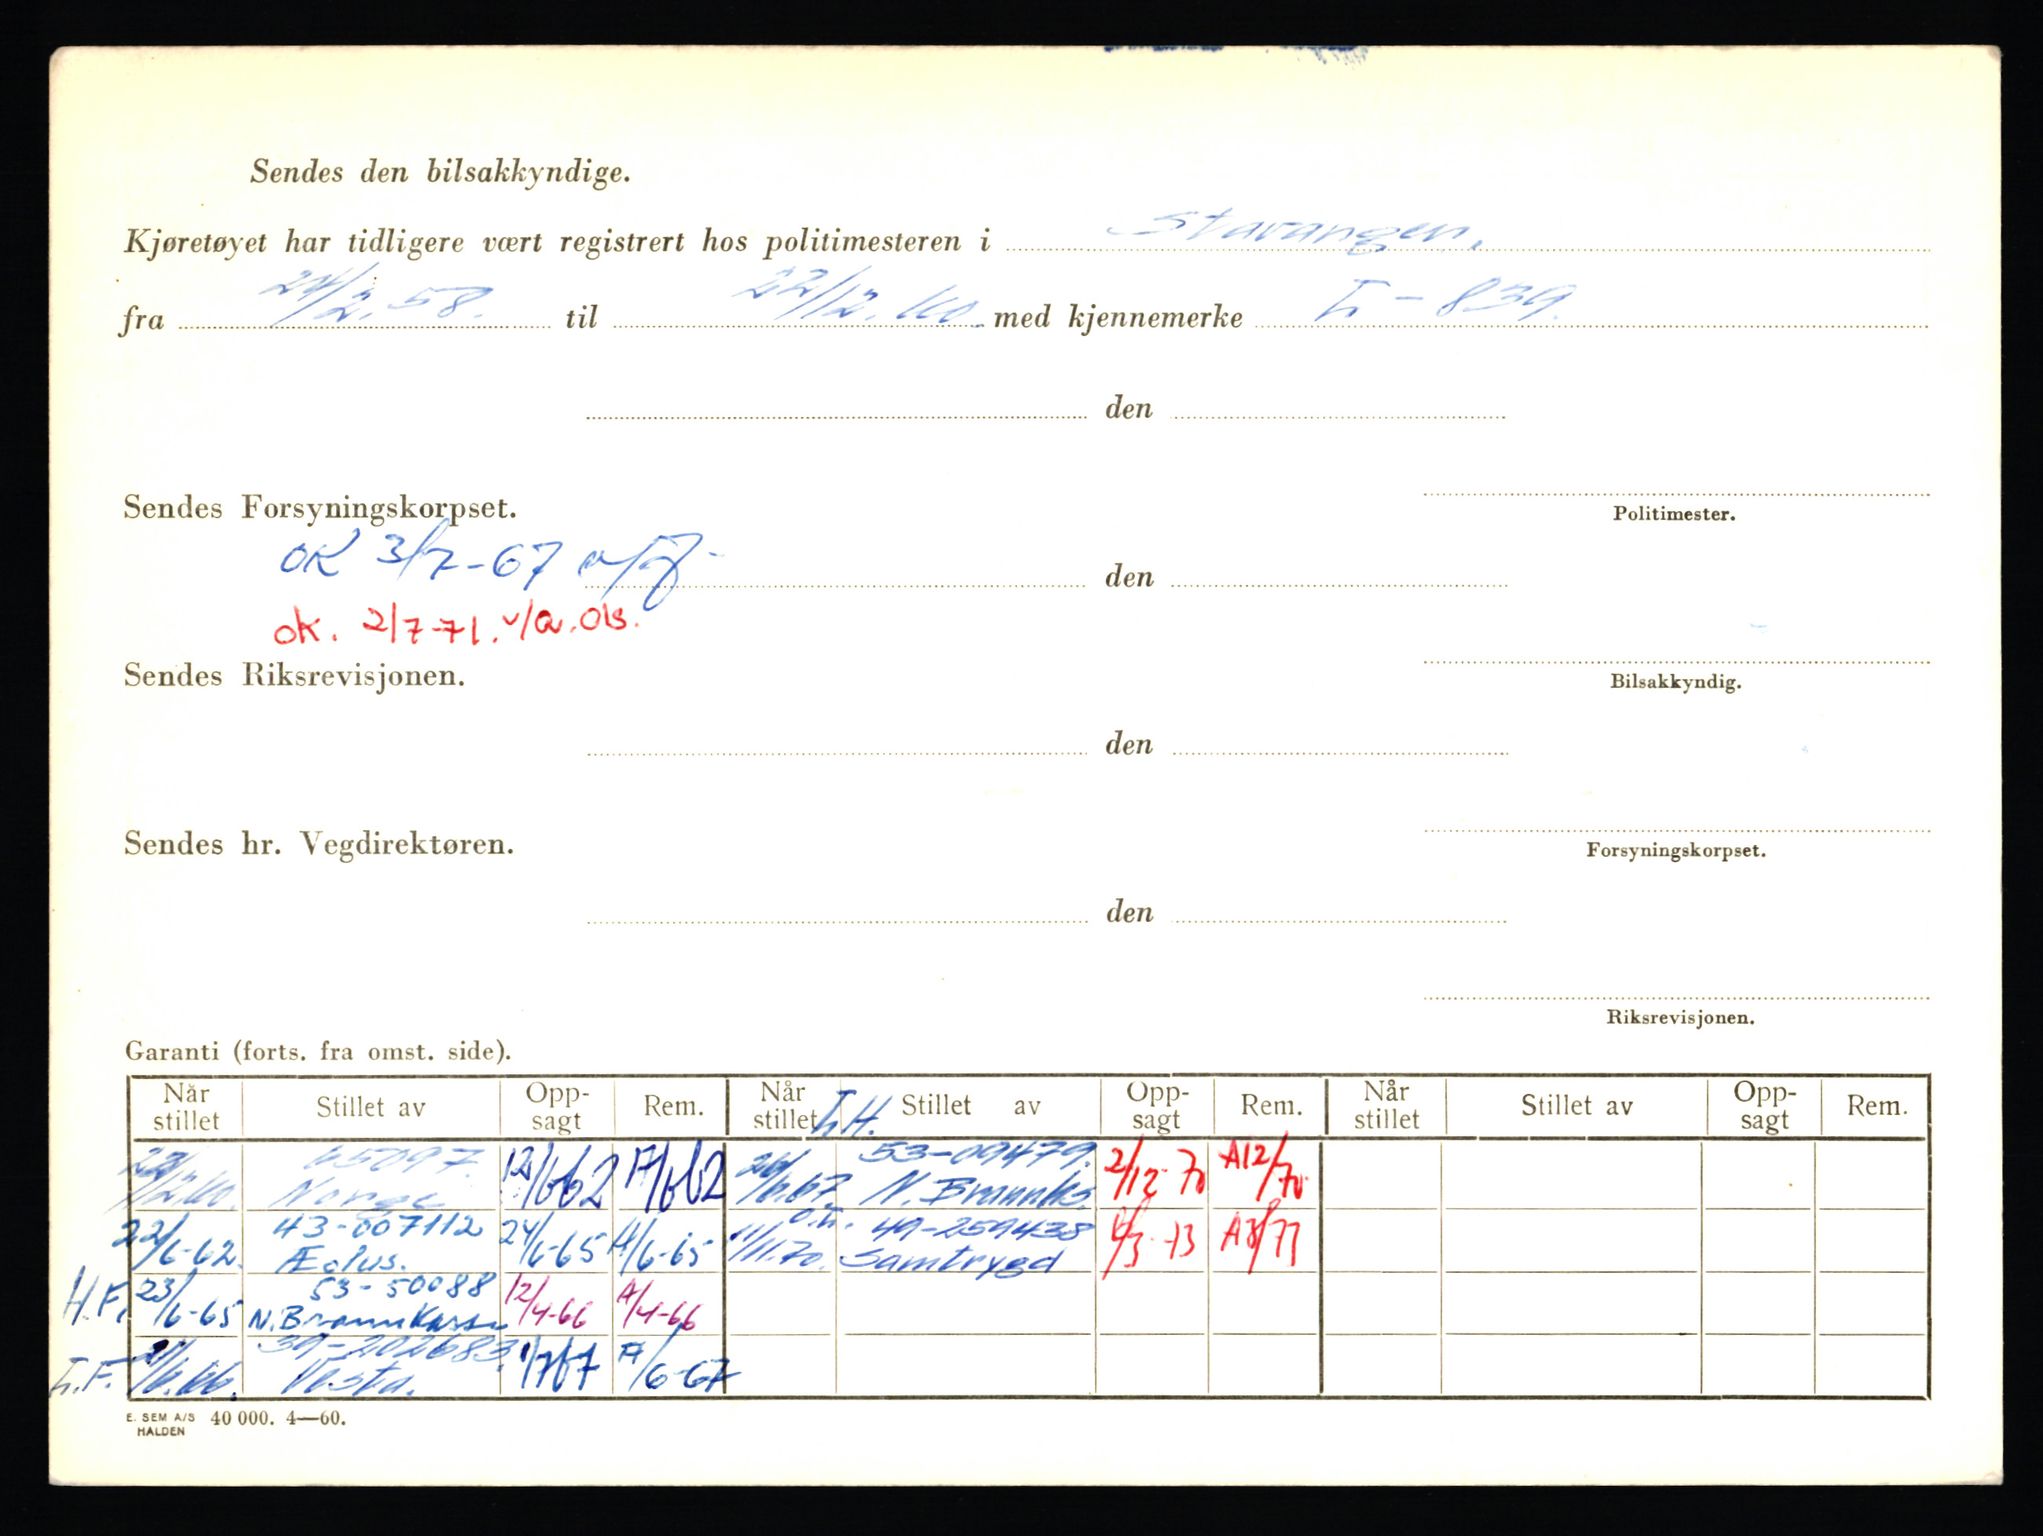 Sendes den bilsakkyndige.
Kjøretøyet har tidligere vært registrert hos politimesteren i Stavanger.
fra 24/2.58. til 22/12.60 med kjennemerke L-839.
den
Sendes Forsyningskorpset.
Politimester.
OK 3/7-67
den
ok. 2/7-71. v/a. Ols.
Sendes Riksrevisjonen.
Bilsakkyndig.
den
Sendes hr. Vegdirektøren.
Forsyningskorpset.
den
Riksrevisjonen.
Garanti (forts. fra omst. side).
Når stillet Stillet av Oppsagt Rem. Når stillet Stillet av Oppsagt Rem. Når stillet Stillet av Oppsagt Rem.
I.H.
65097. 53-09479.
12/6 62 17/6 62 26/6.67. N. Brannks. 2/12 70 A12/70
Norge
22/6-62. 43-007112 24/6-65 A/6-65 11/11.70. 49-259438
Æolus. Samtrygd
H.F. 23/6-65 53-50088 12/4-66 A/4-66
N. Brannkasse
I.F. 39-202683. 1/7 67 A/6-67
Vesta.
E. SEM A/S 40 000. 4—60.
HALDEN